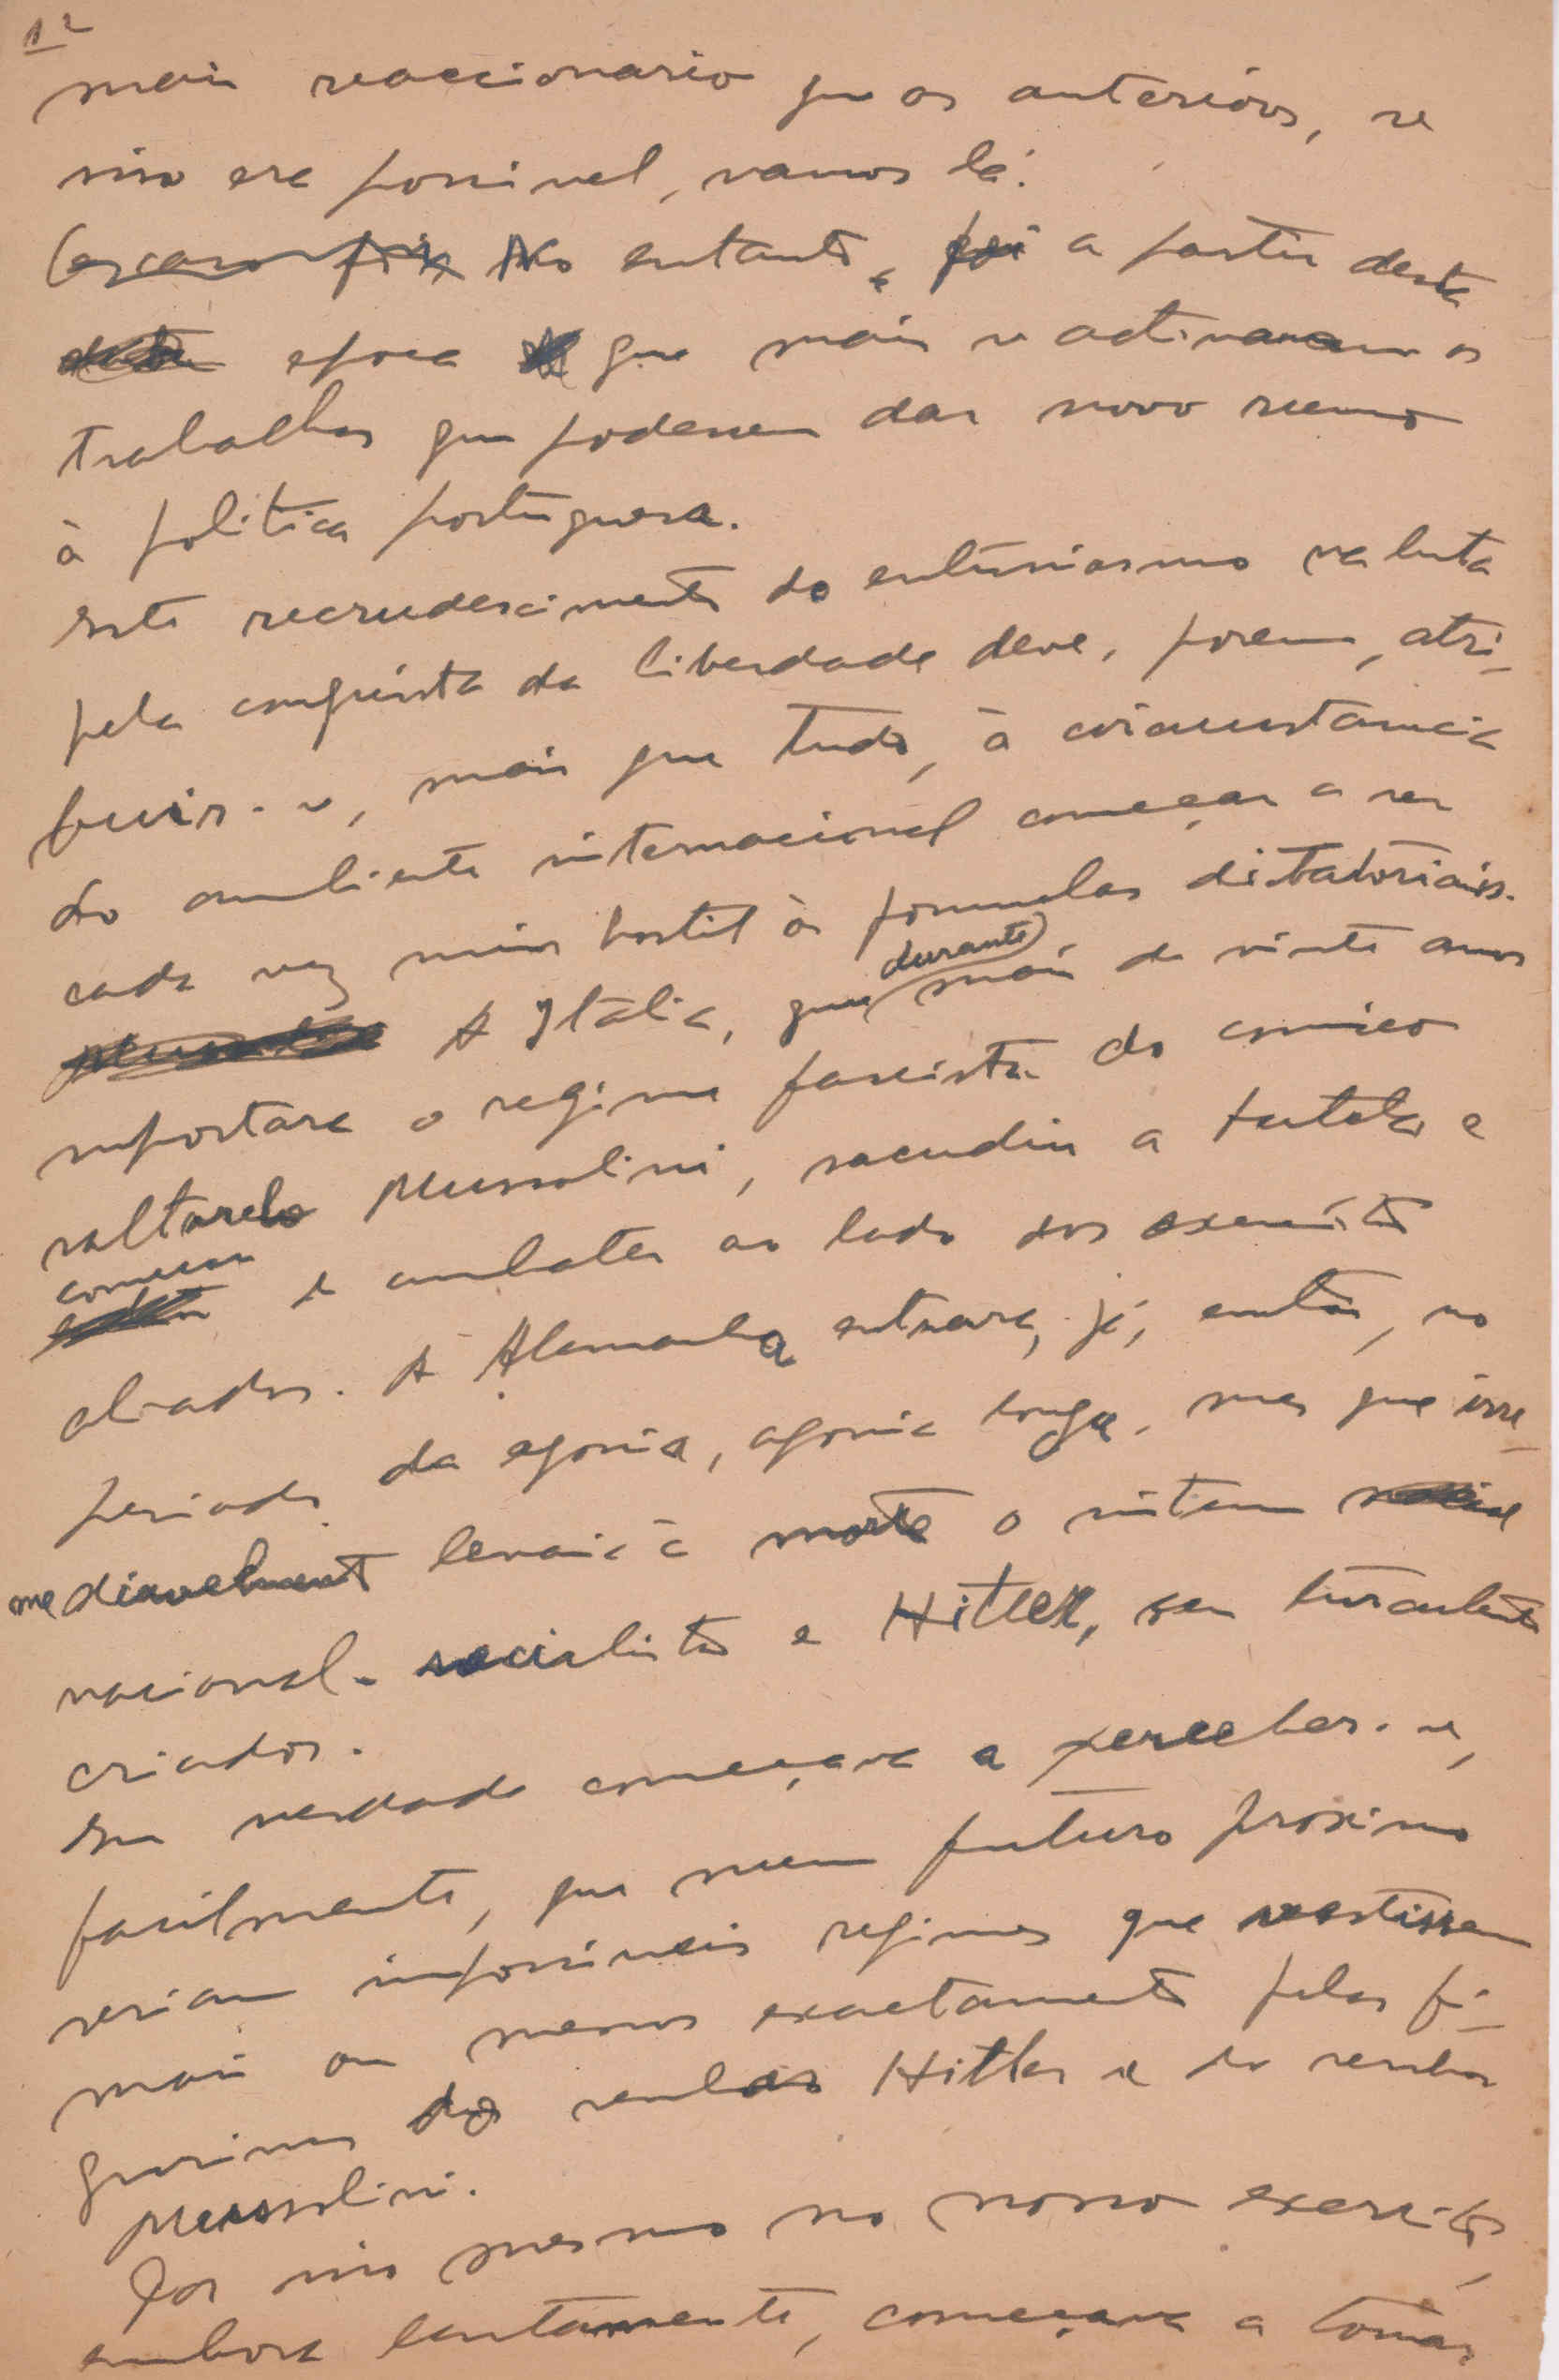 12
mais reaccionario que os anteriores, se
isso era possivel, vamos lá.
No entanto, é a partir desta
epoca que mais se activaram os
trabalhos que podessem dar novo rumo
à politica portuguesa.
Este recrudescimento do entusiasmo na luta
pela conquista da liberdade deve, porem, atri-
buir-se, mais que tudo, à circunstancia
do ambiente internacional começar a ser
cada vez mais hostil às formulas ditatoriais.
A Itália, que durante mais de vinte anos
suportara o regime fascista do comico
saltarelo Mussolini, sacudiu a tutela e
começou a combater ao lado dos exercitos
aliados. A Alemanha entrara, já, então, no
periodo da agonia, agonia longa, mas que irre-
mediavelmente levaria à morte o sistema
nacional-socialista e Hitler, seu turbulento
criador.
Em verdade começava a perceber-se,
facilmente, que num futuro proximo
seriam impossiveis regimes que vestissem
mais ou menos exactamente pelos fi-
gurinos do senhor Hitler e do senhor
Mussolini.
Por isso mesmo no nosso exercito,
embora lentamente, começava a tomar